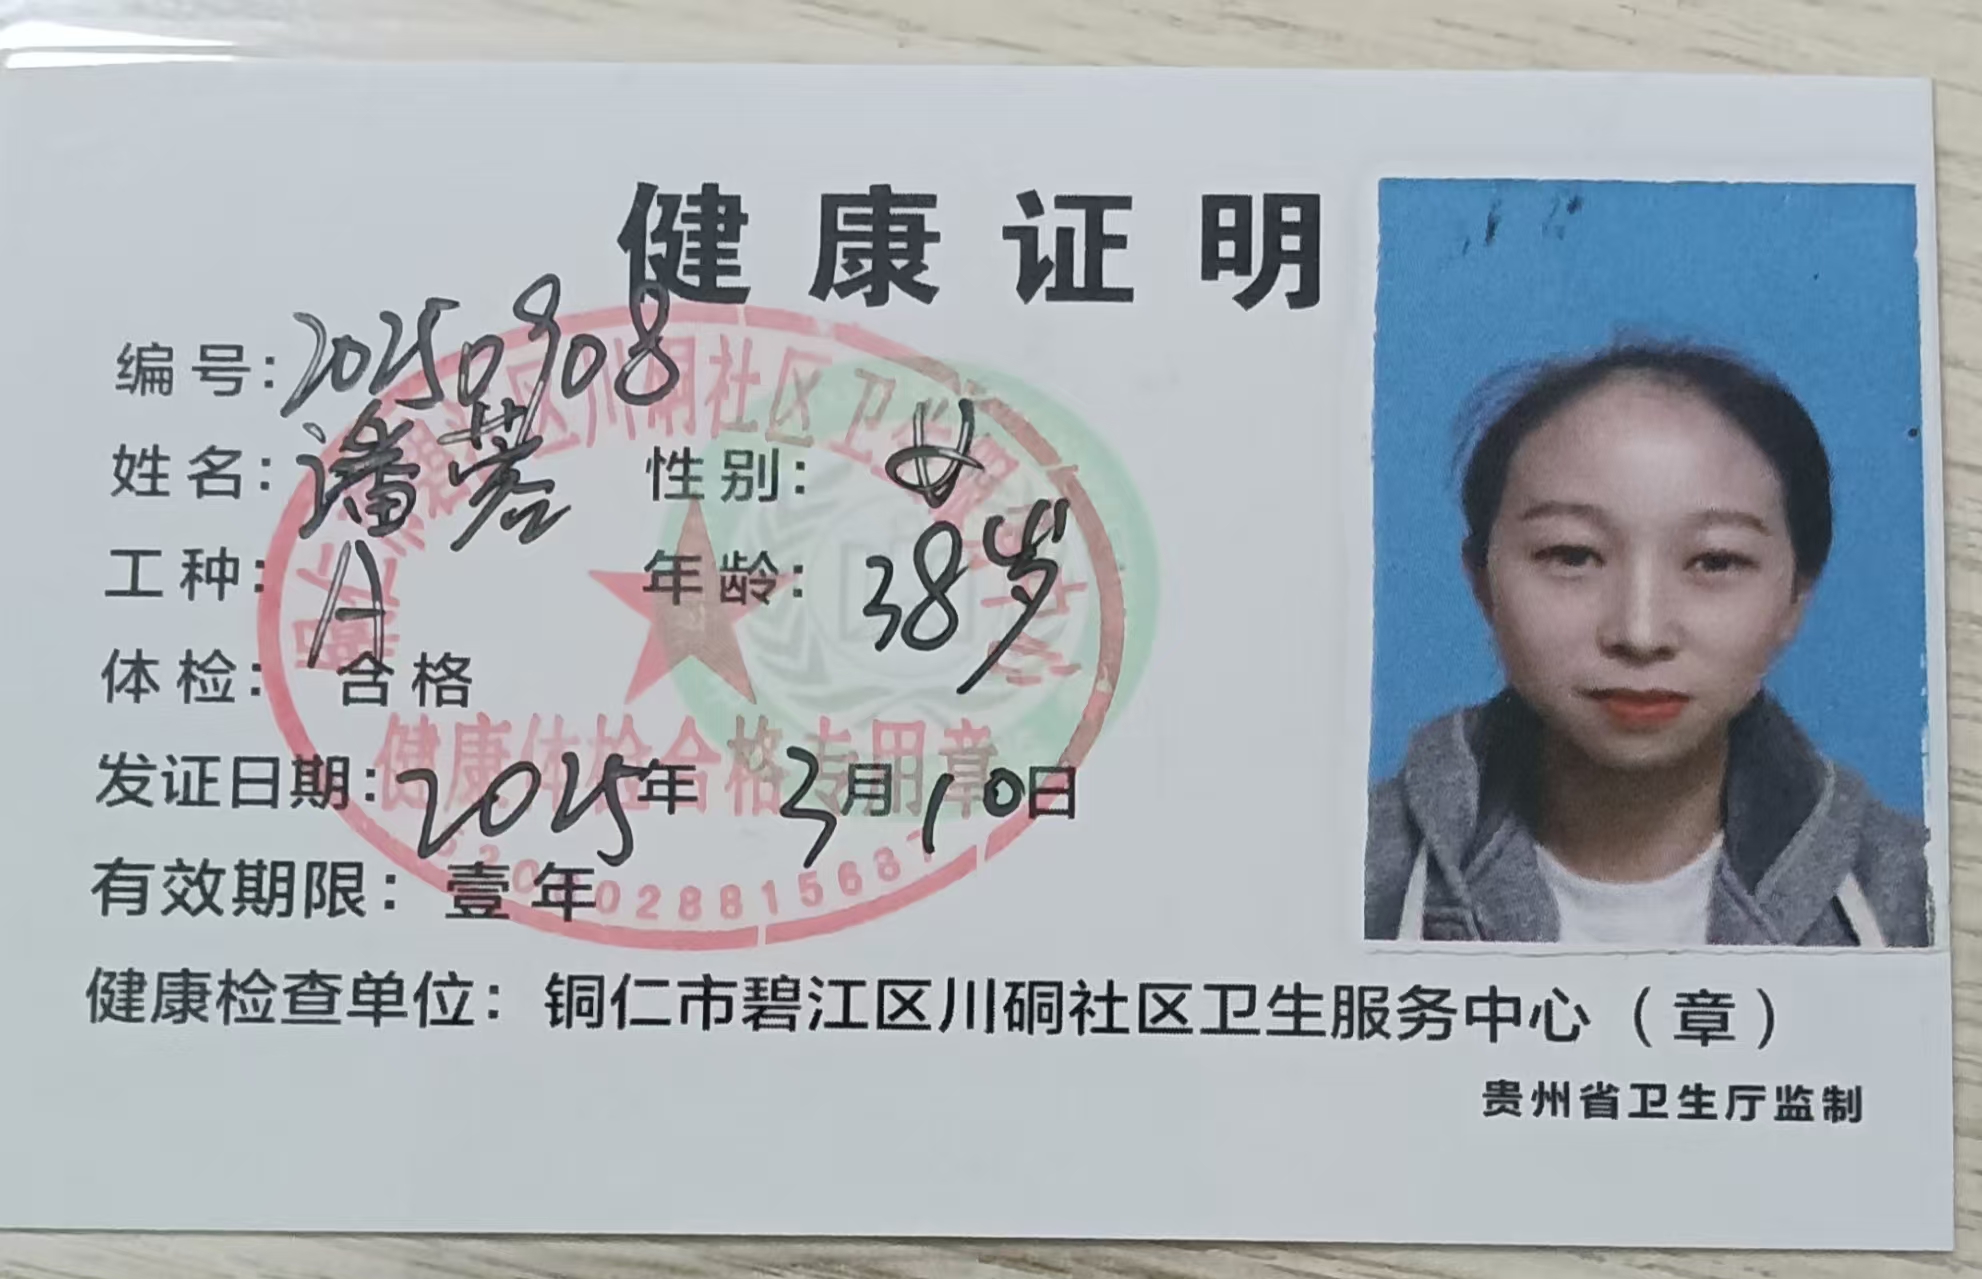 健康证明
编号：20250908
姓名：潘蓉 性别：女
工种：A 年龄：38岁
体检：合格
发证日期：2025年3月10日
有效期限：壹年
健康检查单位：铜仁市碧江区川硐社区卫生服务中心（章）
贵州省卫生厅监制
健康体检合格专用章